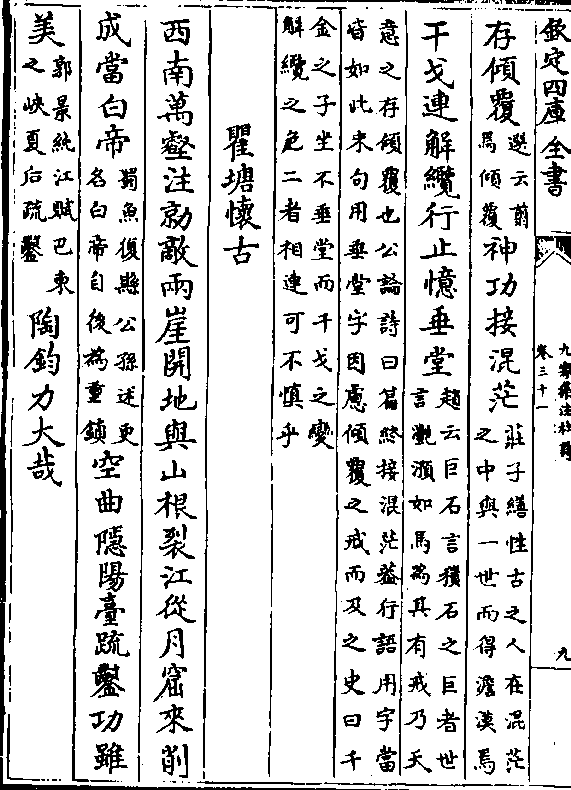 欽定四庫全書
九家集注杜詩
卷三十一
九
存傾覆選云前馬傾覆神功接混茫莊子繕性古之人在混茫之中與一世而得澹漠焉
干戈連解纜行止憶垂堂趙云巨石言積石之巨者世言灎澦如馬為其有戒乃天
意之存傾覆也公論詩曰篇終接混茫葢行語用字當
皆如此末句用垂堂字因慮傾覆之戒而及之史曰千
金之子坐不垂堂而干戈之變
解纜之危二者相連可不慎乎
瞿塘懷古
西南萬壑注勍敵兩崖開地與山根裂江從月窟來削
成當白帝蜀魚復縣公孫述更名白帝自後為重鎮空曲隱陽臺疏鑿功雖
美郭景純江賦巴東之峽夏后疏鑿陶鈞力大哉